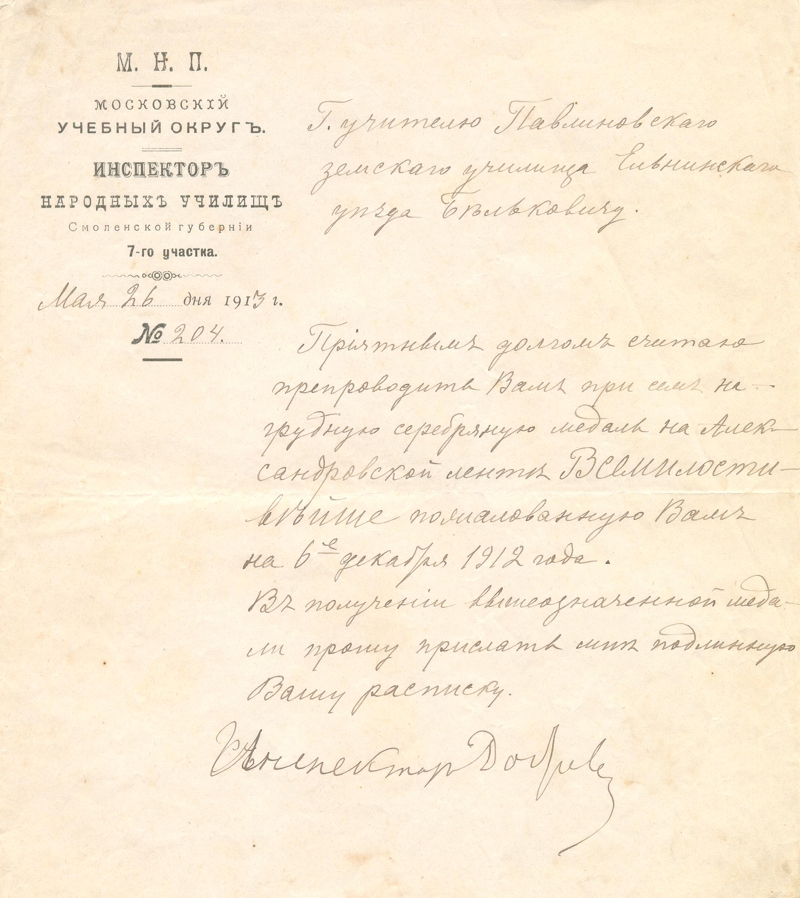 М. Н. П.
МОСКОВСКІЙ
УЧЕБНЫЙ ОКРУГЪ.
ИНСПЕКТОРЪ
НАРОДНЫХЪ УЧИЛИЩЪ
Смоленской губерніи
7-го участка.
Мая 26 дня 1913 г.
№ 204.
Г. учителю Павлиновскаго
земскаго училища Ельнинскаго
уѣзда Бѣльковичу.
Пріятнымъ долгомъ считаю
препроводить Вамъ при семъ на-
грудную серебряную медаль на Алек-
сандровской лентѣ ВСЕМИЛОСТИ-
ВѢЙШЕ пожалованную Вамъ
на 6е декабря 1912 года.
Въ полученіи вышеозначенной меда-
ли прошу прислать мнѣ подлинную
Вашу расписку.
Инспектор